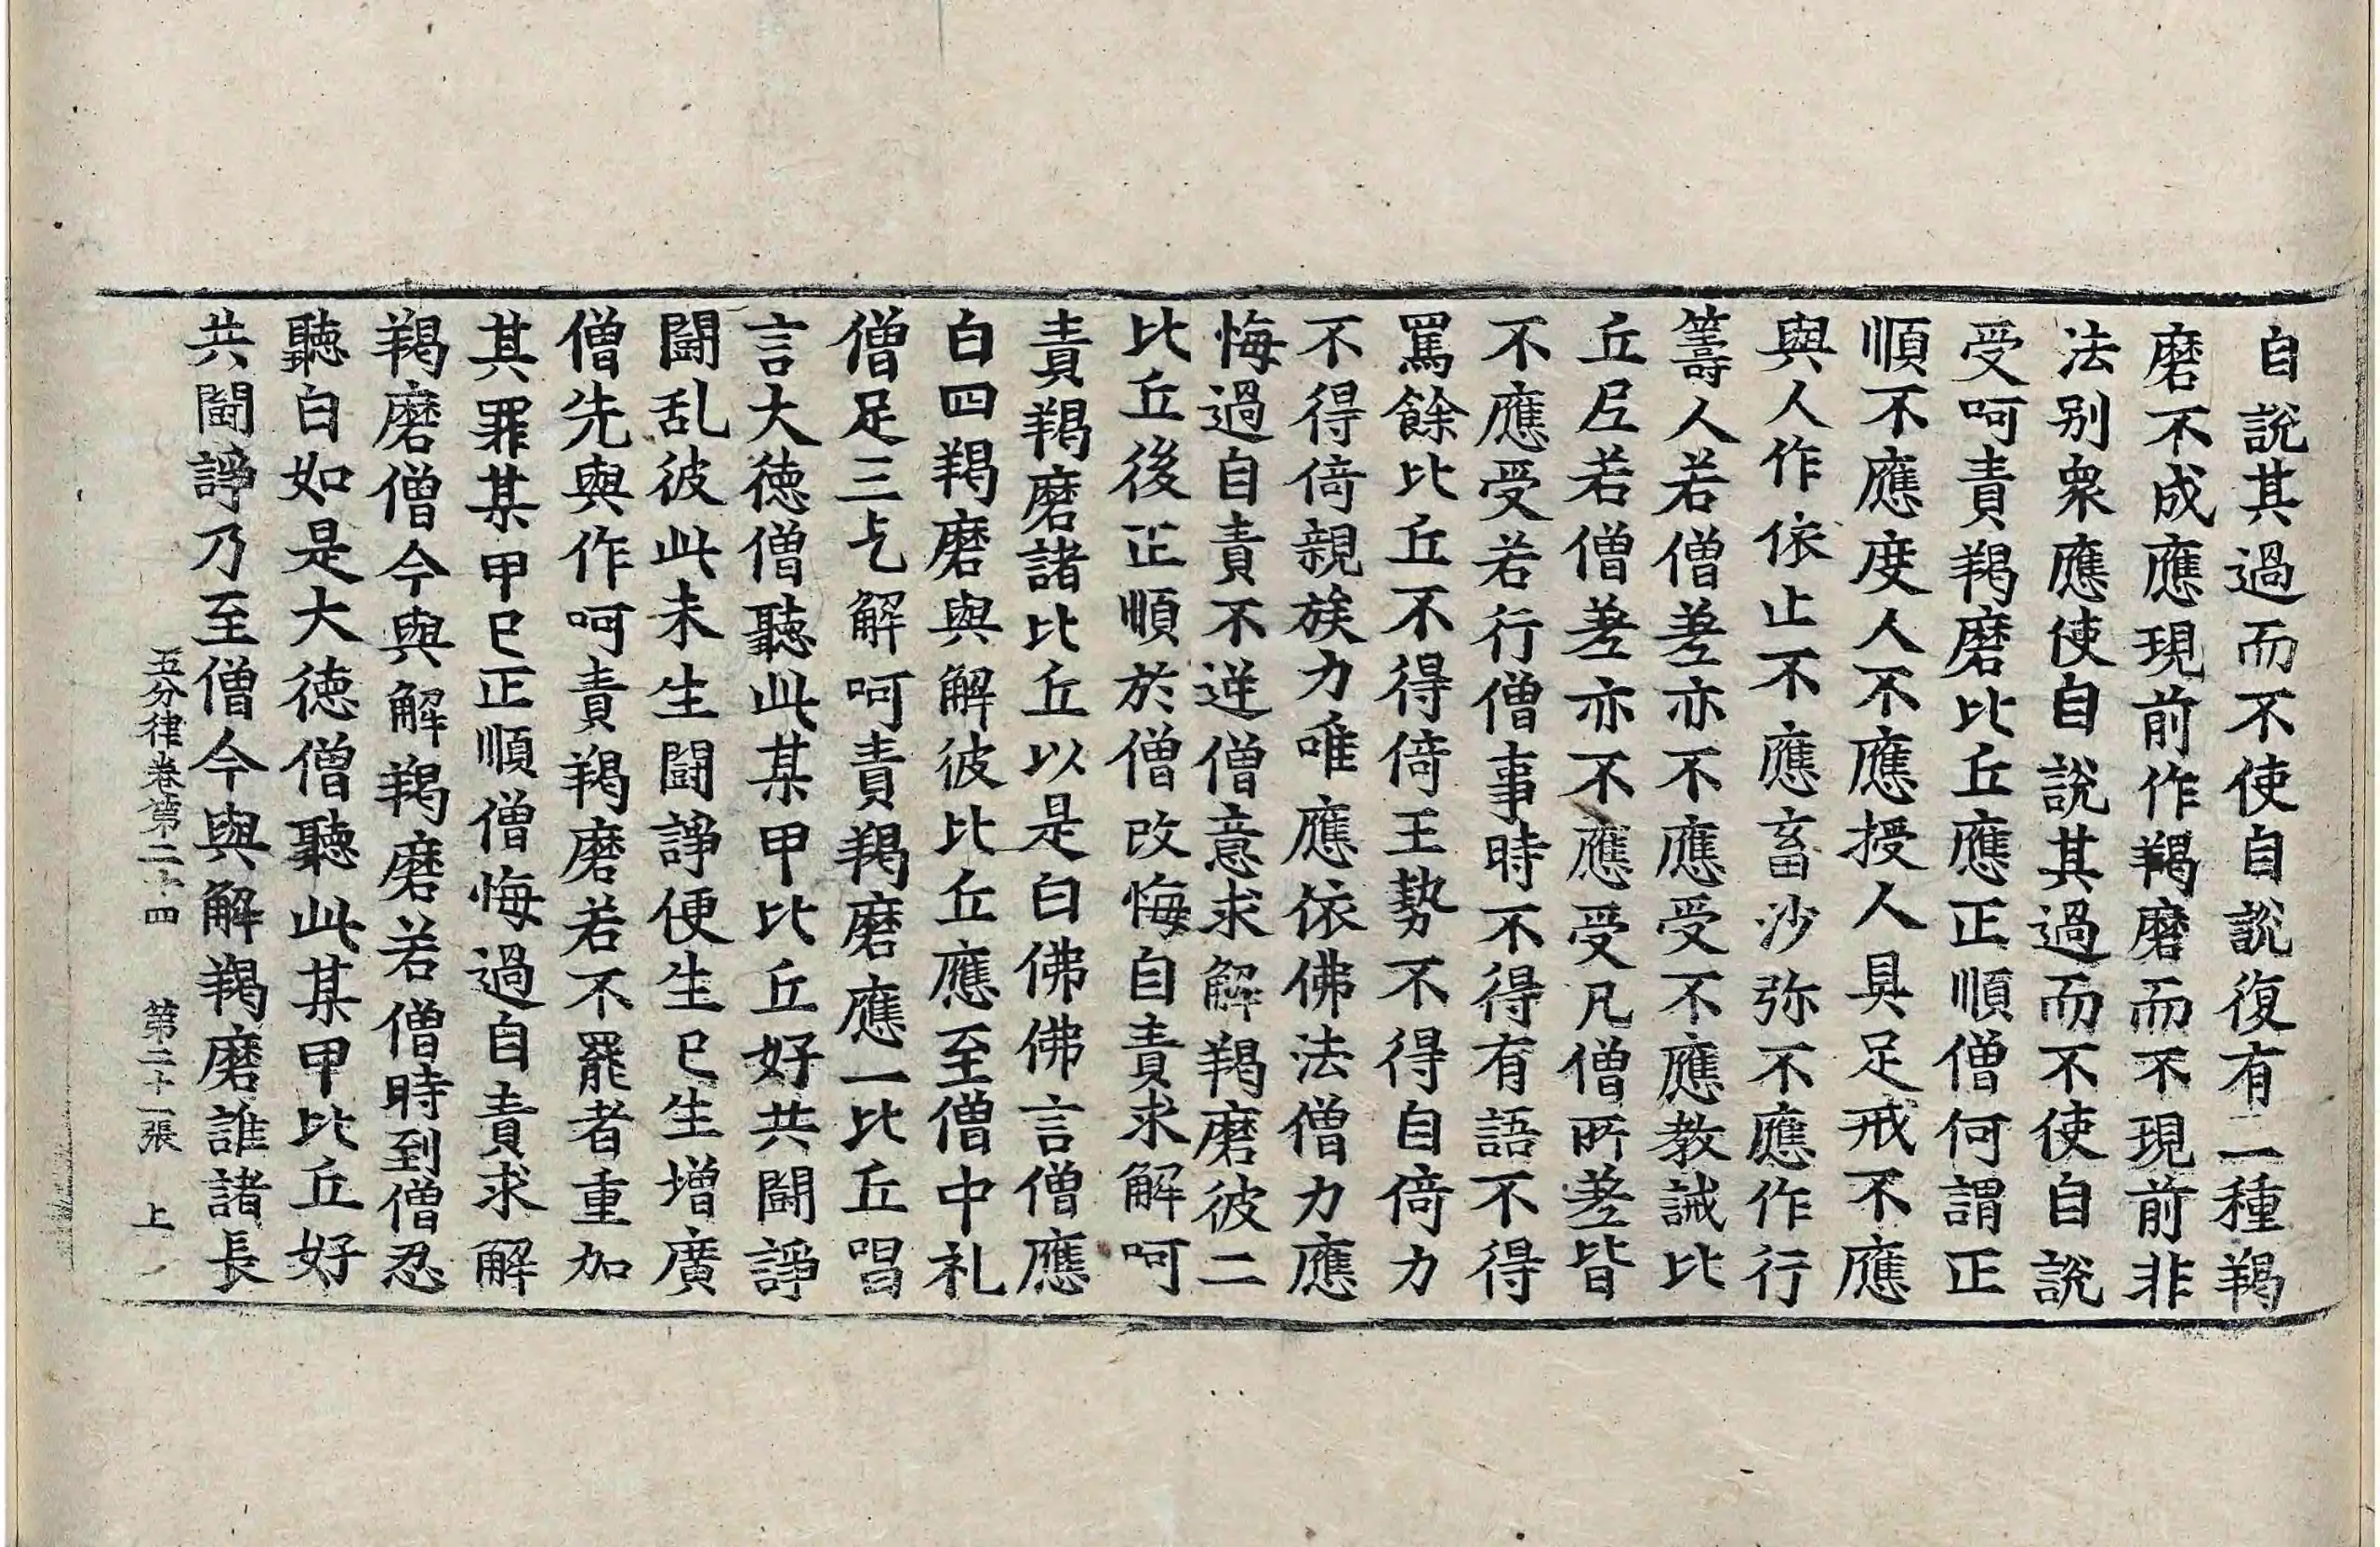 自說其過而不使自說復有二種羯
磨不成應現前作羯磨而不現前非
法别衆應使自說其過而不使自說
受呵責羯磨比丘應正順僧何謂正
順不應度人不應授人具足戒不應
與人作依止不應畜沙弥不應作行
籌人若僧差亦不應受不應教誡比
丘尼若僧差亦不應受凡僧所差皆
不應受若行僧事時不得有語不得
罵餘比丘不得倚王勢不得自倚力
不得倚親族力唯應依佛法僧力應
悔過自責不逆僧意求解羯磨彼二
比丘後正順於僧改悔自責求解呵
責羯磨諸比丘以是白佛佛言僧應
白四羯磨與解彼比丘應至僧中礼
僧足三乞解呵責羯磨應一比丘唱
言大德僧聽此某甲比丘好共鬪諍
鬪乱彼此未生鬪諍便生已生增廣
僧先與作呵責羯磨若不罷者重加
其罪某甲已正順僧悔過自責求解
羯磨僧今與解羯磨若僧時到僧忍
聽白如是大德僧聽此某甲比丘好
共鬪諍乃至僧今與解羯磨誰諸長
五分律卷第二十四 第二十一張 上